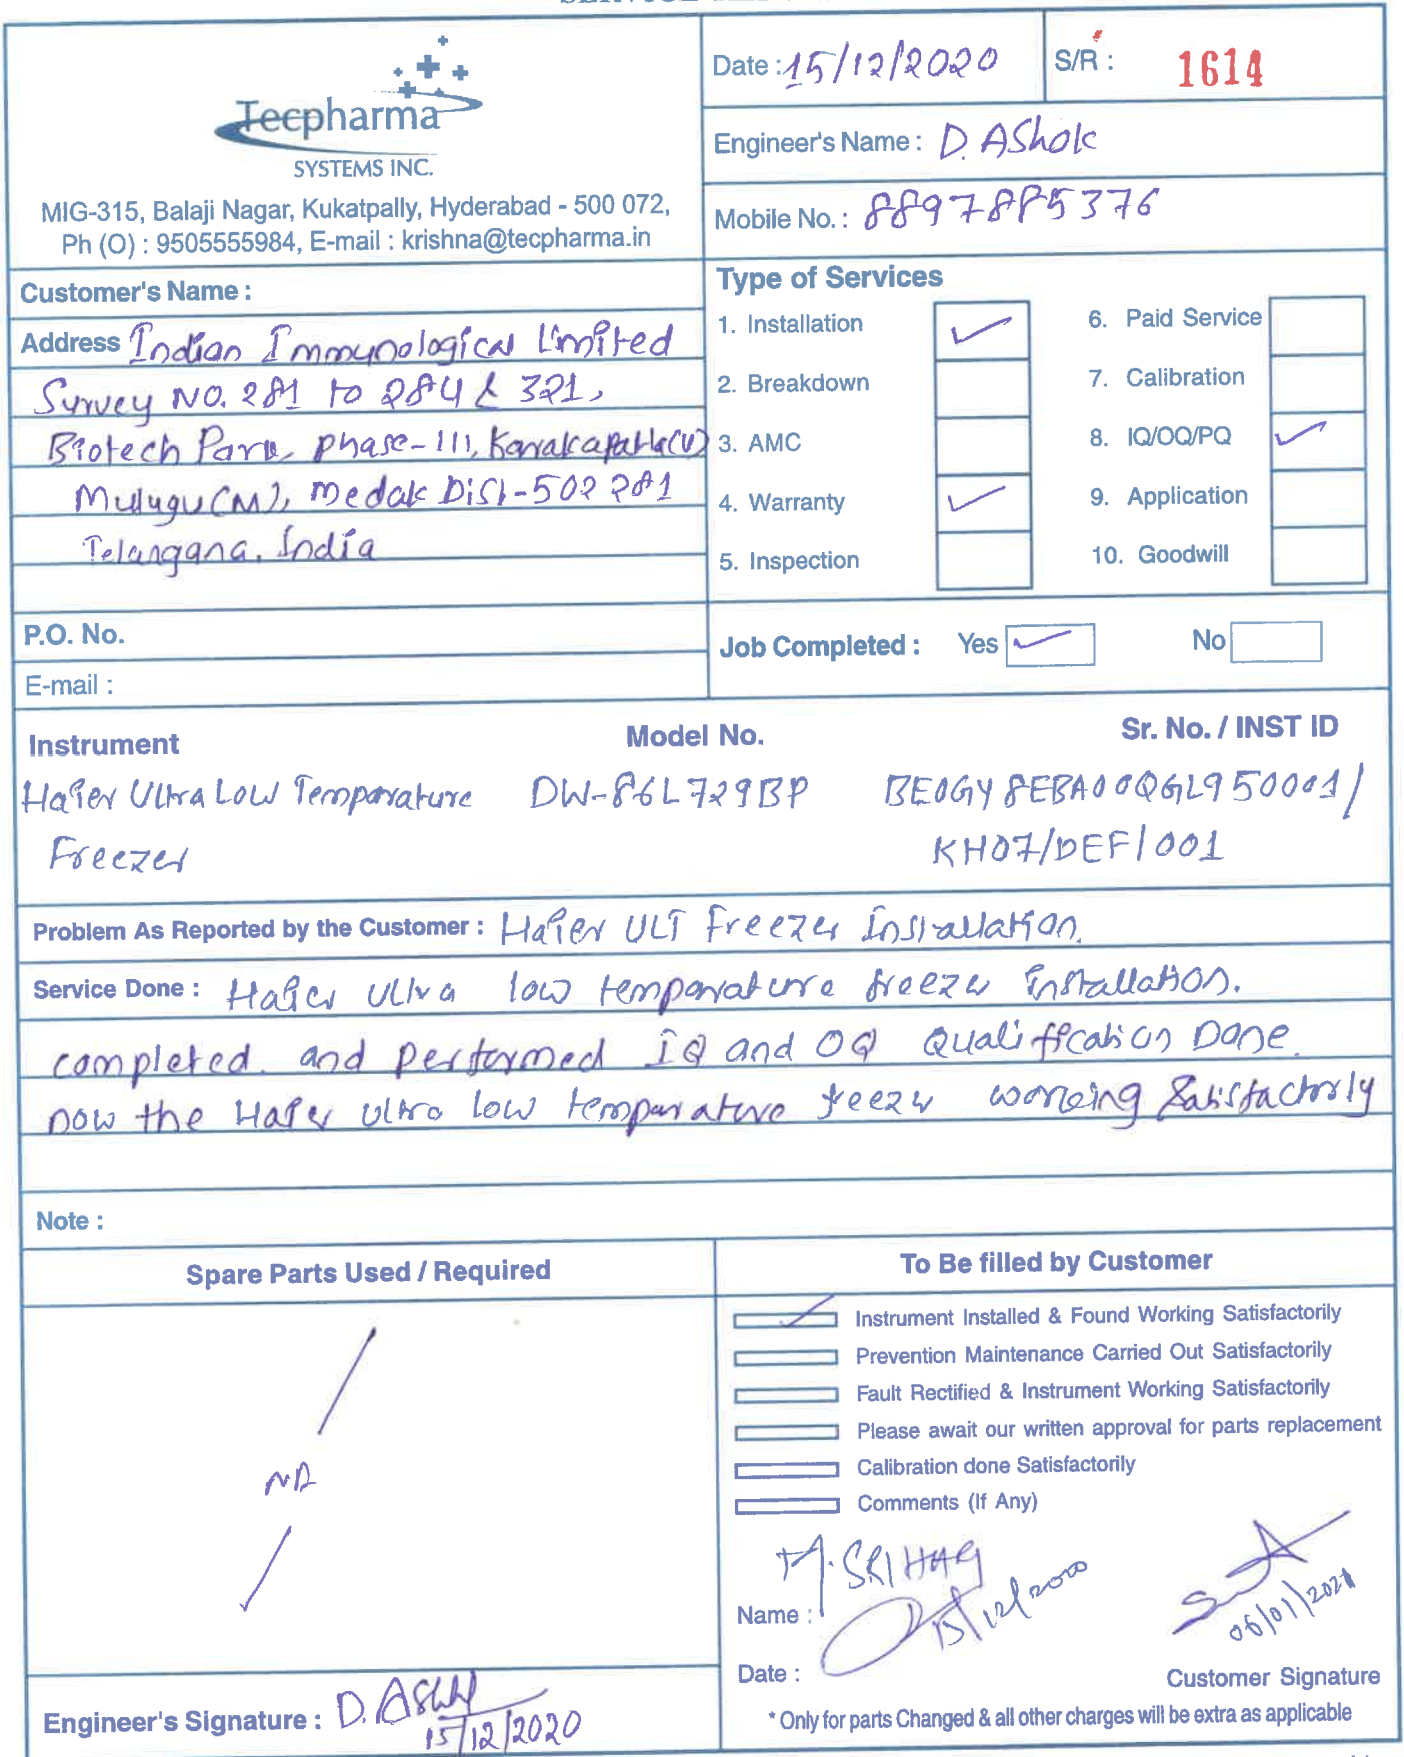 Tecpharma
SYSTEMS INC.
MIG-315, Balaji Nagar, Kukatpally, Hyderabad - 500 072,
Ph (O) : 9505555984, E-mail : krishna@tecpharma.in
Date : 15/12/2020
S/R : 1614
Engineer's Name : D. AShok
Mobile No. : 8897885376
Customer's Name :
Address Indian Immunological Limited
Survey NO. 281 to 284 & 321,
Biotech Park, phase-III, Karakapatla(V)
Mulugu(M), Medak Dist-502 281
Telangana. India
P.O. No.
E-mail :
Type of Services
1. Installation
2. Breakdown
3. AMC
4. Warranty
5. Inspection
6. Paid Service
7. Calibration
8. IQ/OQ/PQ
9. Application
10. Goodwill
Job Completed : Yes No
Instrument Model No. Sr. No. / INST ID
Haier Ultra Low Temparature DW-86L729BP BE0GY8EBA00QGL950001/
Freezer KH07/DEF/001
Problem As Reported by the Customer : Haier ULT Freezer Installation.
Service Done : Haier Ultra low temparature freezer installation.
completed. and performed IQ and OQ Qualification Done.
now the Haier ultra low temparature freezer working satisfactorly
Note :
Spare Parts Used / Required
NA
Engineer's Signature : D. Ashok
15/12/2020
To Be filled by Customer
Instrument Installed & Found Working Satisfactorily
Prevention Maintenance Carried Out Satisfactorily
Fault Rectified & Instrument Working Satisfactorily
Please await our written approval for parts replacement
Calibration done Satisfactorily
Comments (If Any)
Name :
15/12/2020
06/01/2021
Date :
Customer Signature
* Only for parts Changed & all other charges will be extra as applicable